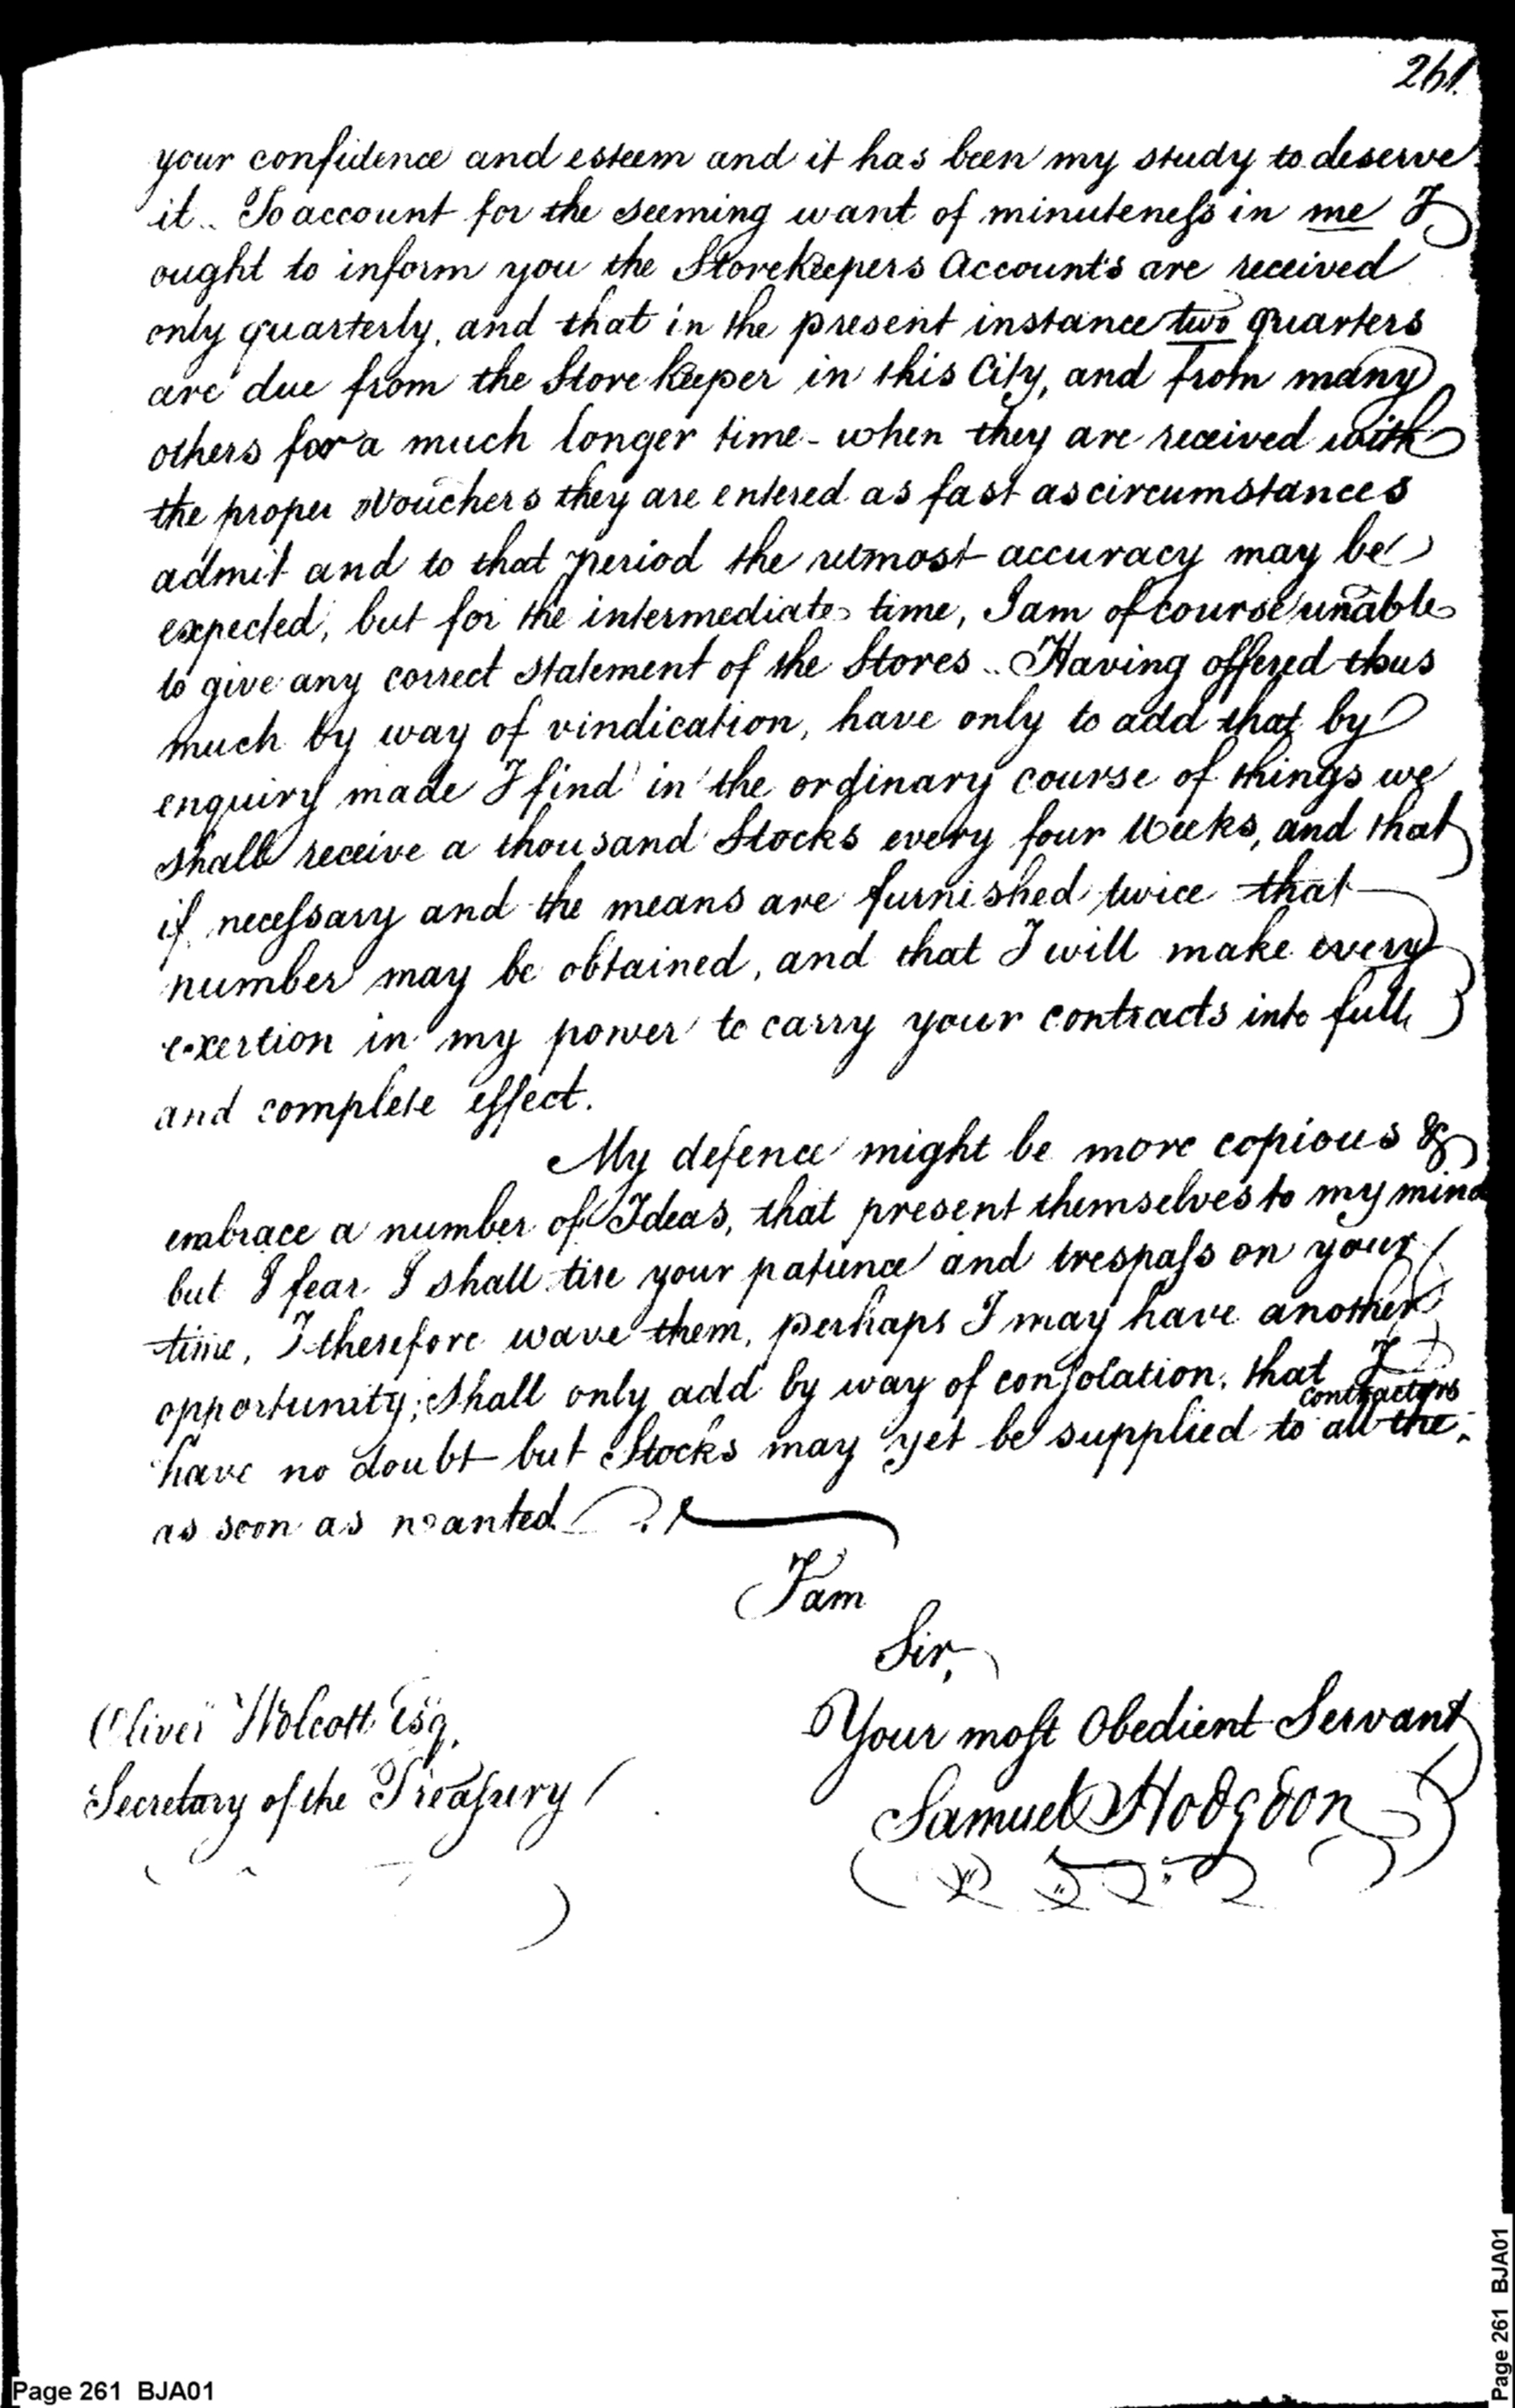 261.
your confidence and esteem and it has been my study to deserve
it.. To account for the seeming want of minuteneſs in me I
ought to inform you the Storekeepers Accounts are received
only quarterly, and that in the present instance two quarters
are due from the Store keeper in this City, and from many
others for a much longer time - when they are received with
the proper Vouchers they are entered as fast as circumstances
admit and to that period the utmost accuracy may be
expected, but for the intermediate time, I am of course unable
to give any correct statement of the Stores .. Having offered thus
much by way of vindication, have only to add that by
enquiry made I find in the ordinary course of things we
shall receive a thousand Stocks every four Weeks, and that
if neceſsary and the means are furnished twice that
number may be obtained, and that I will make every
exertion in my power to carry your contracts into full
and complete effect.
My defence might be more copious &
embrace a number of Ideas, that present themselves to my mind
but I fear I shall tire your patience and trespaſs on your
time, I therefore wave them, perhaps I may have another
opportunity; Shall only add by way of conſolation, that I
contractors
have no doubt but Stocks may yet be supplied to all the
as soon as wanted
I am
Sir,
Oliver Wolcott Esq.
Your moſt Obedient Servant
Secretary of the Treaſury
Samuel Hodgdon
Page 261 BJA01
Page 261 BJA01